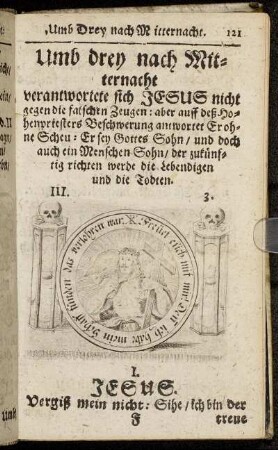 Umb Drey nach Mitternacht. 121
Umb drey nach Mit-
ternacht
verantwortete sich JESUS nicht
gegen die falschen Zeugen: aber auff deß Ho-
henpriesters Beschwerung antwortet Er oh-
ne Scheu: Er sey Gottes Sohn / und doch
auch ein Menschen Sohn / der zukünf-
tig richten werde die Lebendigen
und die Todten.
III. 3.
Freuet euch mit mir Den ich habe mein Schaf funden das verlohren war. X.
I.
JESUS.
Vergiß mein nicht: Sihe / ich bin der
F treue